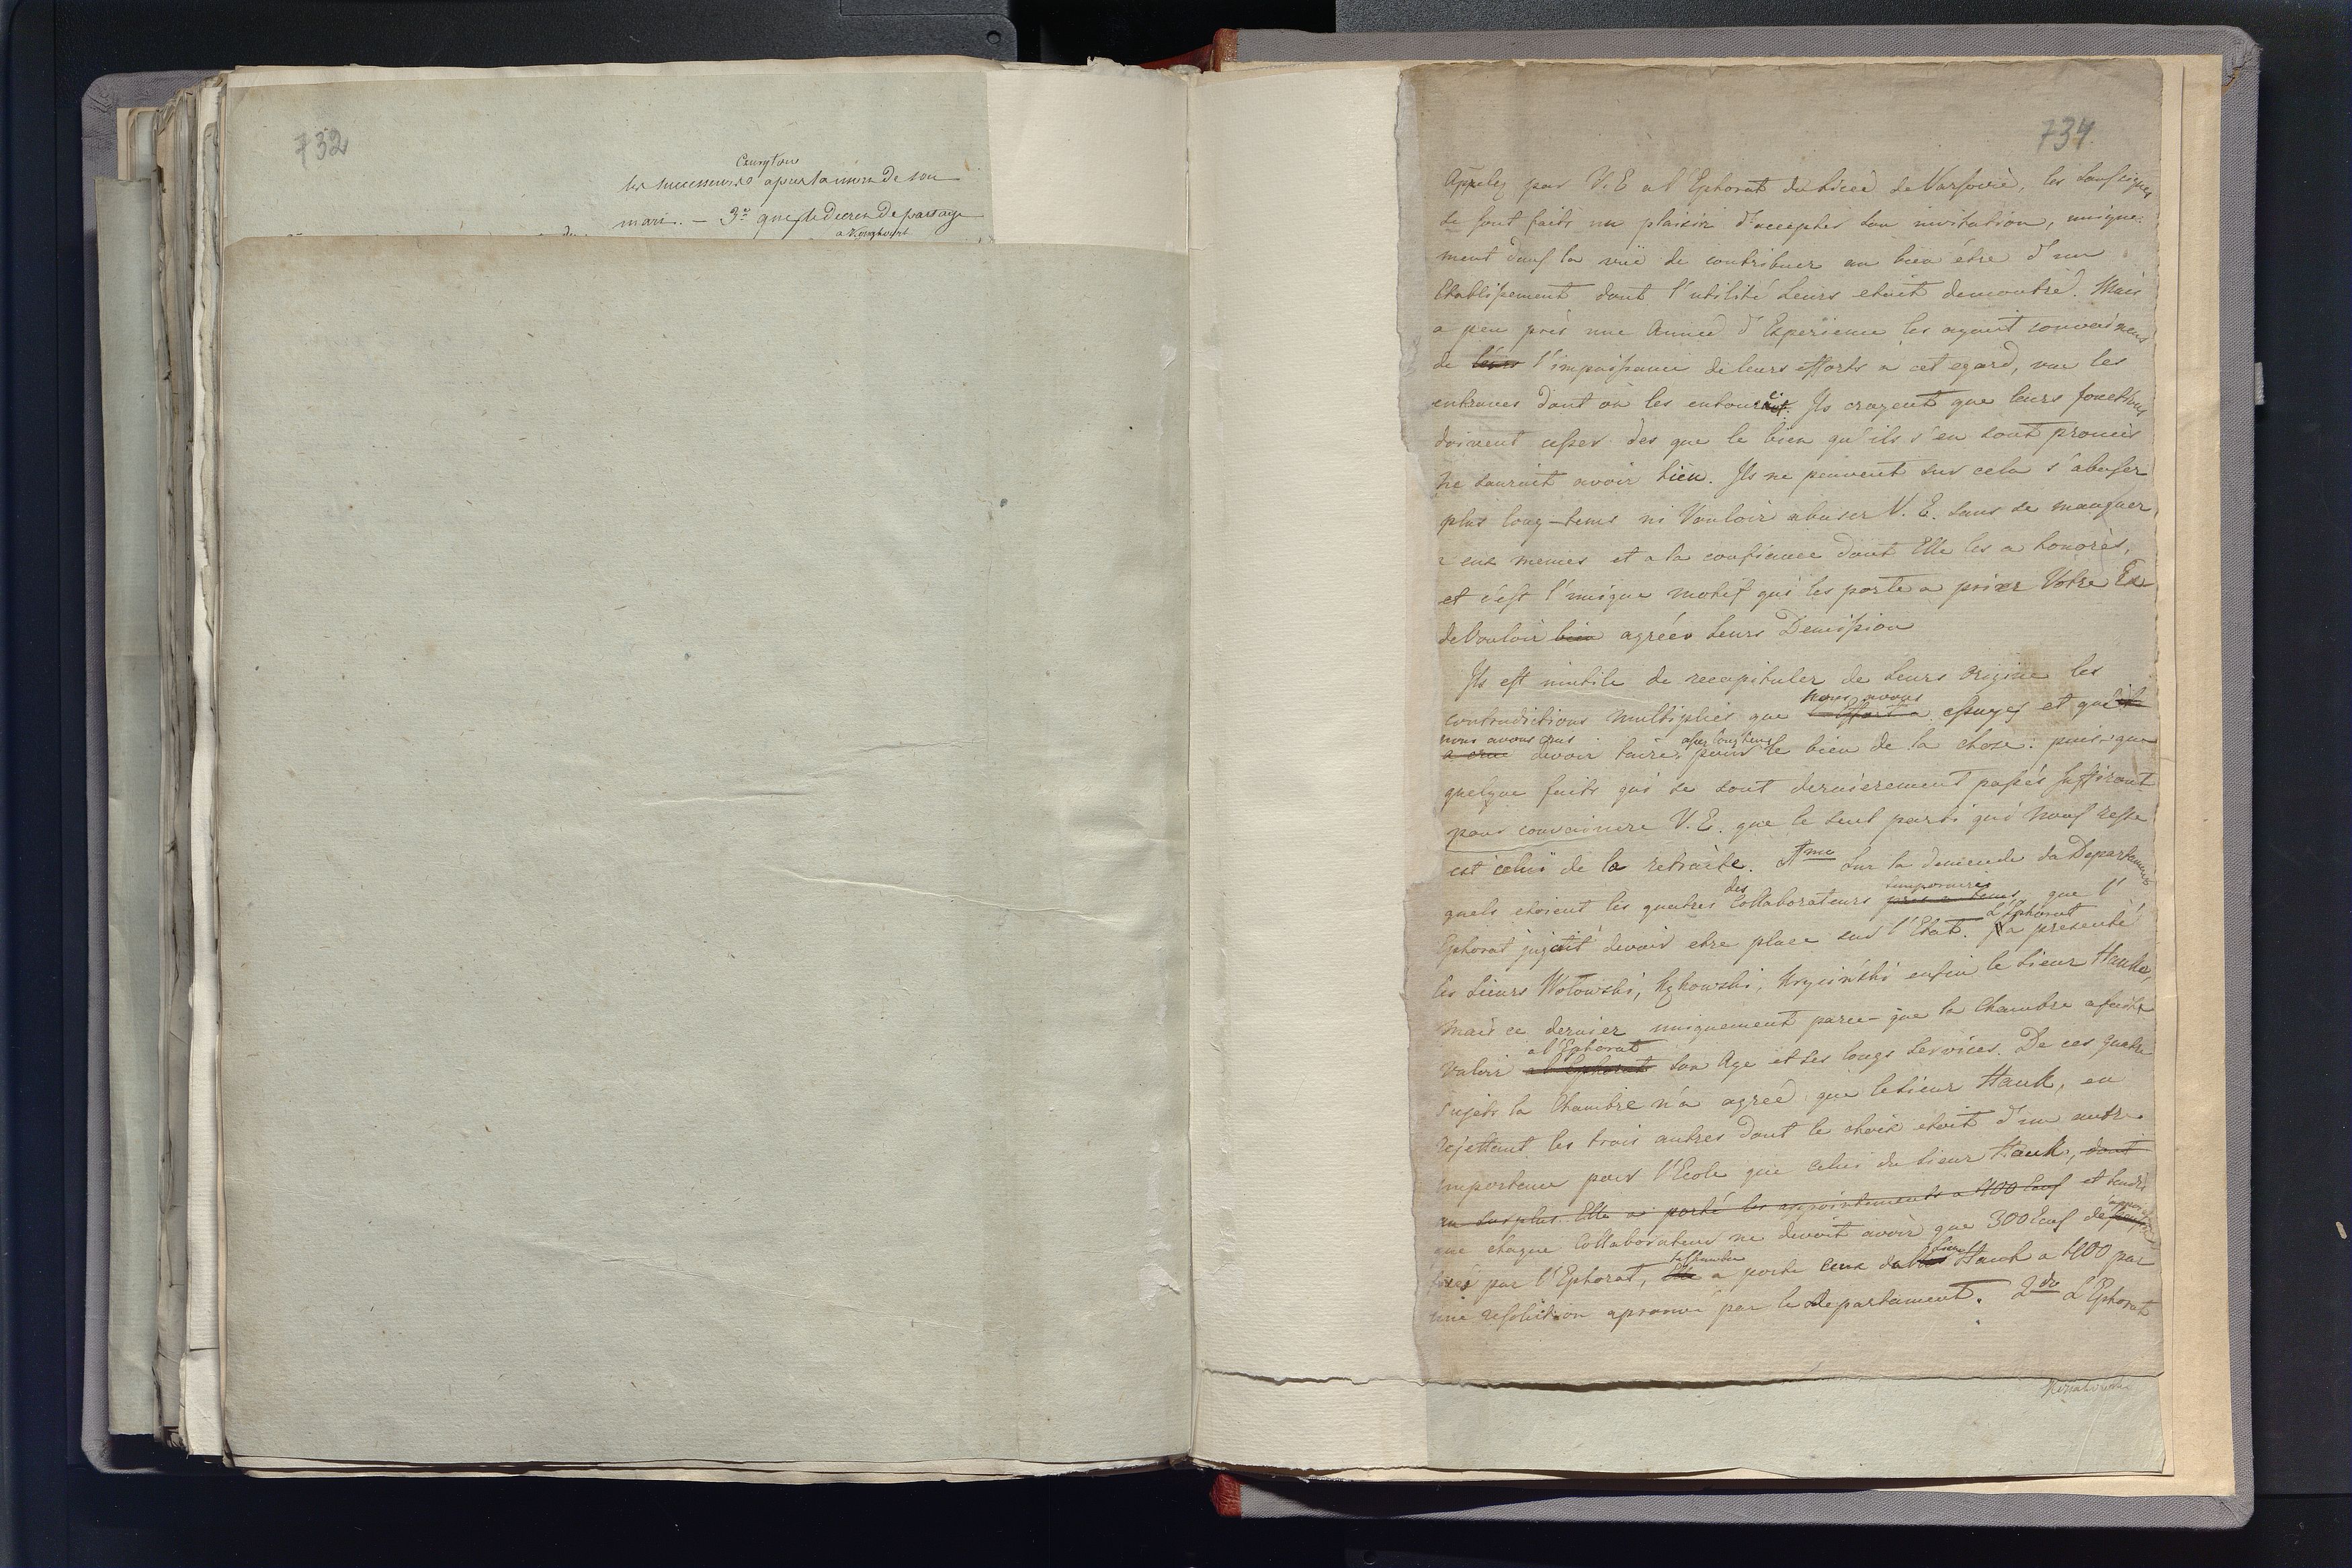 732
les successeurs apres la mort de son
mari. — 3° que le decret de partage
734
Appelez par V. E a l'Ephorat du Liceé de Varsovie, les Sousignés
se sont faits un plaisir d'accepter son invitation, unique-
ment dans la vuë de contribuer au bien être d'un
Etablissement dont l'utilité leurs etoit demontré. Mais
a peu près une Anneé d'Experience les ayant convaincus
de leurs l'impuissance de leurs efforts a cet egard, vue les
entraves dont on les entouroit. Ils croyent que leurs fonctions
doivent cesser des que le bien qu'ils s'en sont promis
ne sauroit avoir lieu. Ils ne peuvent sur cela s'abuser
plus long-tems ni vouloir abuser V. E. sans se manquer
a eux memes et a la confiance dont Elle les a honorés,
et c'est l'unique motif qui les porte a prier Votre Ex
de Vouloir bien agréer leurs Demission
Ils est inutile de recapituler de leurs origine les
nous avons
contradictions multipliés que essuyes et qu'il
nous avons crus assez longtems
a crue devoir taire, pour le bien de la chose: puis-que
quelque faits qui se sont dernierement passés suffiront
pour convaincre V. E. que le seul parti qui nous reste
est celui de la retraite. 1mo Sur la demende du Departament
des temporaires
quels etoient les quatres Collaborateurs que l'
L'Ephorat
Ephorat jugeait devoir etre place sur l'Etat. Il a presenté
les Sieurs Wołowski, enfin le Sieur Hauke,
mais ce dernier uniquement parce-que la Chambre a faite
a l'Ephorat
valoir a l'Ephorat son Age et ses longs services. De ces quatre
Sujets la Chambre n'a agreé que le Sieur Hauk, en
rejettant les trois autres dont le choix etoit d'un autre
importence pour l'Ecole que celui du Sieur Hauk, dont
au surplus Elle a porté les appointements a 400 Ecus et tandis
que chaque Collaborateur ne devoit avoir que 300 Ecus de
la Chambre Sieur
fixés par l'Ephorat, Elle a porte ceux du Hauk a 400 par
une resolution aprouvé par le Departament. 2do L'Ephorat